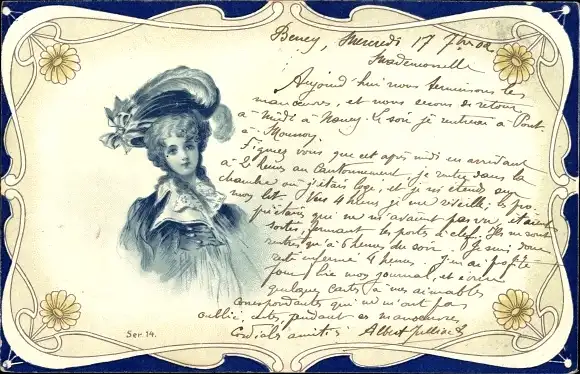 Beney, Mercredi 17 7bre 02
Mademoiselle
Aujourd'hui nous terminons les
manœuvres, et nous serons de retour
à midi à Nancy. Le soir je rentrerai à Pont
à Mousson.
Figurez vous que cet après midi en arrivant
à 2 heures au Cantonnement, je entre dans la
chambre où j'étais logé, et je m'étends sur
mon lit. Vers 4 heures je me réveille; les pro-
priétaires qui ne m'avaient pas vu, étaient
sortis, fermant les portes à clef. Ils ne sont
rentrés qu'à 6 heures du soir. Je suis donc
resté enfermé 4 heures. J'en ai profité
pour lire mon journal, et écrire
quelques cartes à mes aimables
correspondantes qui ne m'ont pas
oublié, pendant ces manœuvres
Cordiales amitiés Albert
Ser. 14.